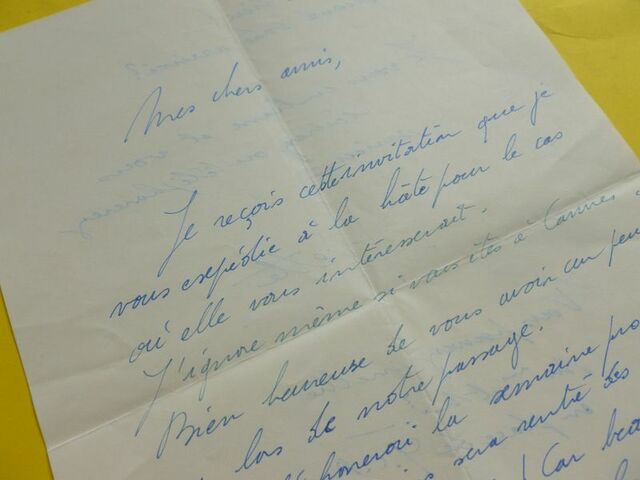 Mes chers amis,
Je reçois cette invitation que je
vous expédie à la hâte pour le cas
où elle vous intéresserait.
J'ignore même si vous êtes à Cannes.
Bien heureuse de vous avoir un peu
lors de notre passage.
la semaine pro
sera rentré des
! Car bea